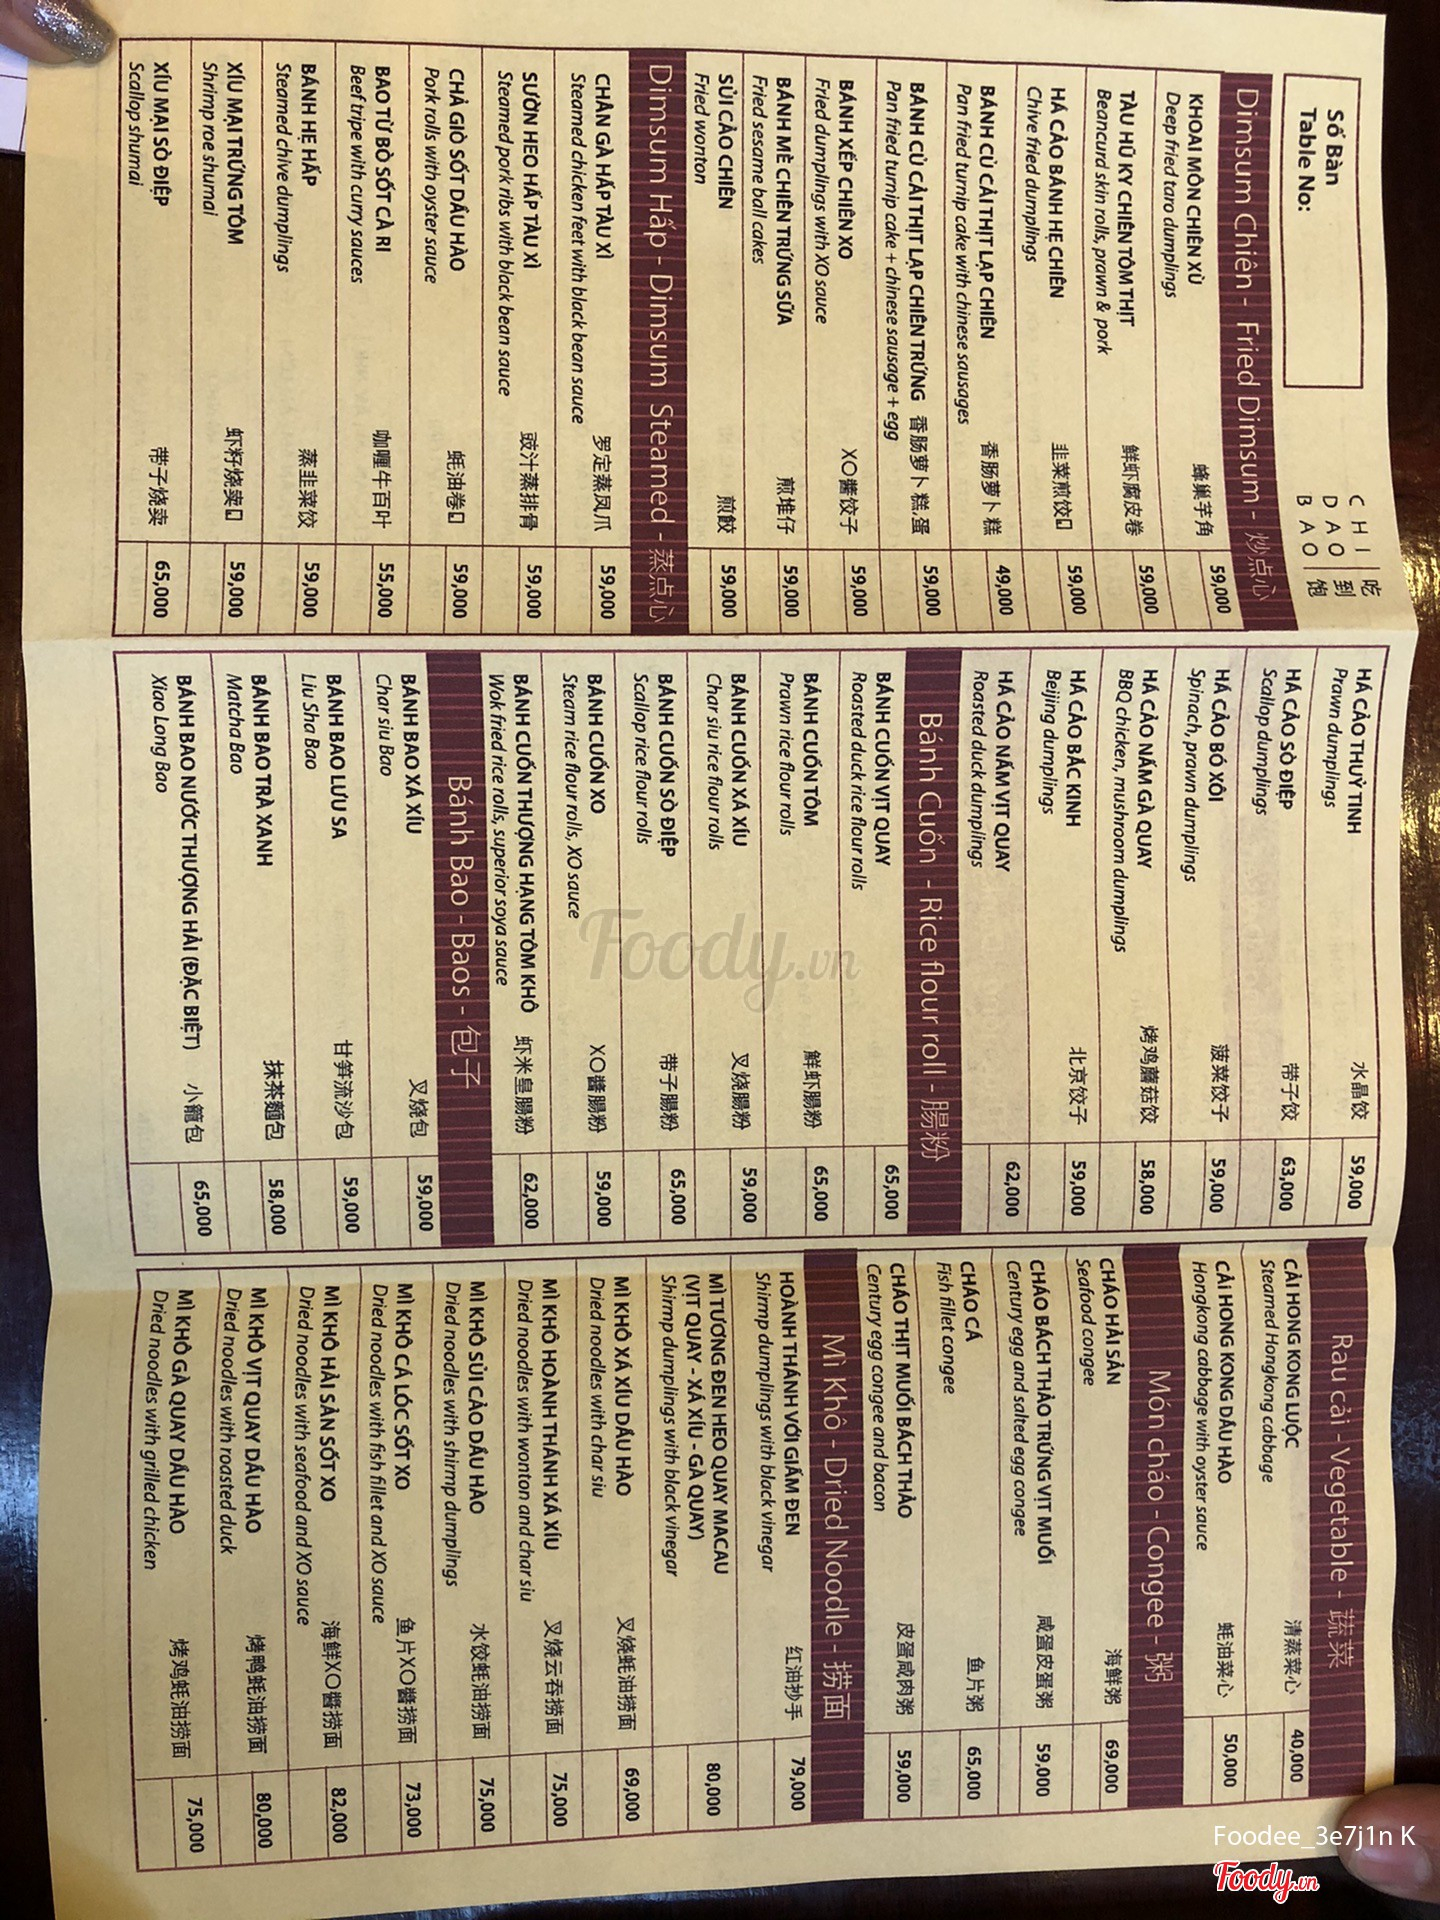 Số Bàn
Table No:
CHI | 吃
DAO | 到
BAO | 饱
Dimsum Chiên - Fried Dimsum - 炒点心
KHOAI MÔN CHIÊN XÙ 蜂巢芋角 59,000
Deep fried taro dumplings
TÀU HŨ KY CHIÊN TÔM THỊT 鲜虾腐皮卷 59,000
Beancurd skin rolls, prawn & pork
HÁ CẢO BÁNH HẸ CHIÊN 韭菜煎饺 59,000
Chive fried dumplings
BÁNH CỦ CẢI THỊT LẠP CHIÊN 香肠萝卜糕 49,000
Pan fried turnip cake with chinese sausages
BÁNH CỦ CẢI THỊT LẠP CHIÊN TRỨNG 香肠萝卜糕,蛋 59,000
Pan fried turnip cake + chinese sausage + egg
BÁNH XẾP CHIÊN XO XO醬饺子 59,000
Fried dumplings with XO sauce
BÁNH MÈ CHIÊN TRỨNG SỮA 煎堆仔 59,000
Fried sesame ball cakes
SỦI CẢO CHIÊN 煎餃 59,000
Fried wonton
Dimsum Hấp - Dimsum Steamed - 蒸点心
CHÂN GÀ HẤP TÀU XÌ 罗定蒸凤爪 59,000
Steamed chicken feet with black bean sauce
SƯỜN HEO HẤP TÀU XÌ 豉汁蒸排骨 59,000
Steamed pork ribs with black bean sauce
CHẢ GIÒ SỐT DẦU HÀO 蚝油卷 59,000
Pork rolls with oyster sauce
BAO TỬ BÒ SỐT CÀ RI 咖喱牛百叶 55,000
Beef tripe with curry sauces
BÁNH HẸ HẤP 蒸韭菜饺 59,000
Steamed chive dumplings
XÍU MẠI TRỨNG TÔM 虾籽烧卖 59,000
Shrimp roe shumai
XÍU MẠI SÒ ĐIỆP 带子烧卖 65,000
Scallop shumai
HÁ CẢO THUỶ TINH 水晶饺 59,000
Prawn dumplings
HÁ CẢO SÒ ĐIỆP 带子饺 63,000
Scallop dumplings
HÁ CẢO BÓ XÔI 菠菜饺子 59,000
Spinach, prawn dumplings
HÁ CẢO NẤM GÀ QUAY 烤鸡蘑菇饺 58,000
BBQ chicken, mushroom dumplings
HÁ CẢO BẮC KINH 北京饺子 59,000
Beijing dumplings
HÁ CẢO NẤM VỊT QUAY 62,000
Roasted duck dumplings
Bánh Cuốn - Rice flour roll - 腸粉
BÁNH CUỐN VỊT QUAY 65,000
Roasted duck rice flour rolls
BÁNH CUỐN TÔM 鮮虾腸粉 65,000
Prawn rice flour rolls
BÁNH CUỐN XÁ XÍU 叉烧腸粉 59,000
Char siu rice flour rolls
BÁNH CUỐN SÒ ĐIỆP 带子腸粉 65,000
Scallop rice flour rolls
BÁNH CUỐN XO XO醬腸粉 59,000
Steam rice flour rolls, XO sauce
BÁNH CUỐN THƯỢNG HẠNG TÔM KHÔ 虾米皇腸粉 62,000
Wok fried rice rolls, superior soya sauce
Bánh Bao - Baos - 包子
BÁNH BAO XÁ XÍU 叉烧包 59,000
Char siu Bao
BÁNH BAO LƯU SA 甘笋流沙包 59,000
Liu Sha Bao
BÁNH BAO TRÀ XANH 抹茶麵包 58,000
Matcha Bao
BÁNH BAO NƯỚC THƯỢNG HẢI (ĐẶC BIỆT) 小籠包 65,000
Xiao Long Bao
Rau cải - Vegetable - 蔬菜
CẢI HONG KONG LUỘC 清蒸菜心 40,000
Steamed Hongkong cabbage
CẢI HONG KONG DẦU HÀO 蚝油菜心 50,000
Hongkong cabbage with oyster sauce
Món cháo - Congee - 粥
CHÁO HẢI SẢN 海鲜粥 69,000
Seafood congee
CHÁO BÁCH THẢO TRỨNG VỊT MUỐI 咸蛋皮蛋粥 59,000
Century egg and salted egg congee
CHÁO CÁ 鱼片粥 65,000
Fish fillet congee
CHÁO THỊT MUỐI BÁCH THẢO 皮蛋咸肉粥 59,000
Century egg congee and bacon
Mì Khô - Dried Noodle - 捞面
HOÀNH THÁNH VỚI GIẤM ĐEN 红油抄手 79,000
Shirmp dumplings with black vinegar
MÌ TƯƠNG ĐEN HEO QUAY MACAU
(VỊT QUAY - XÁ XÍU - GÀ QUAY) 80,000
Shirmp dumplings with black vinegar
MÌ KHÔ XÁ XÍU DẦU HÀO 叉烧蚝油捞面 69,000
Dried noodles with char siu
MÌ KHÔ HOÀNH THÁNH XÁ XÍU 叉烧云吞捞面 75,000
Dried noodles with wonton and char siu
MÌ KHÔ SỦI CẢO DẦU HÀO 水饺蚝油捞面 75,000
Dried noodles with shirmp dumplings
MÌ KHÔ CÁ LÓC SỐT XO 鱼片XO醬捞面 73,000
Dried noodles with fish fillet and XO sauce
MÌ KHÔ HẢI SẢN SỐT XO 海鲜XO醬捞面 82,000
Dried noodles with seafood and XO sauce
MÌ KHÔ VỊT QUAY DẦU HÀO 烤鸭蚝油捞面 80,000
Dried noodles with roasted duck
MÌ KHÔ GÀ QUAY DẦU HÀO 烤鸡蚝油捞面 75,000
Dried noodles with grilled chicken
Foody.vn
Foodee_3e7j1n K
Foody.vn